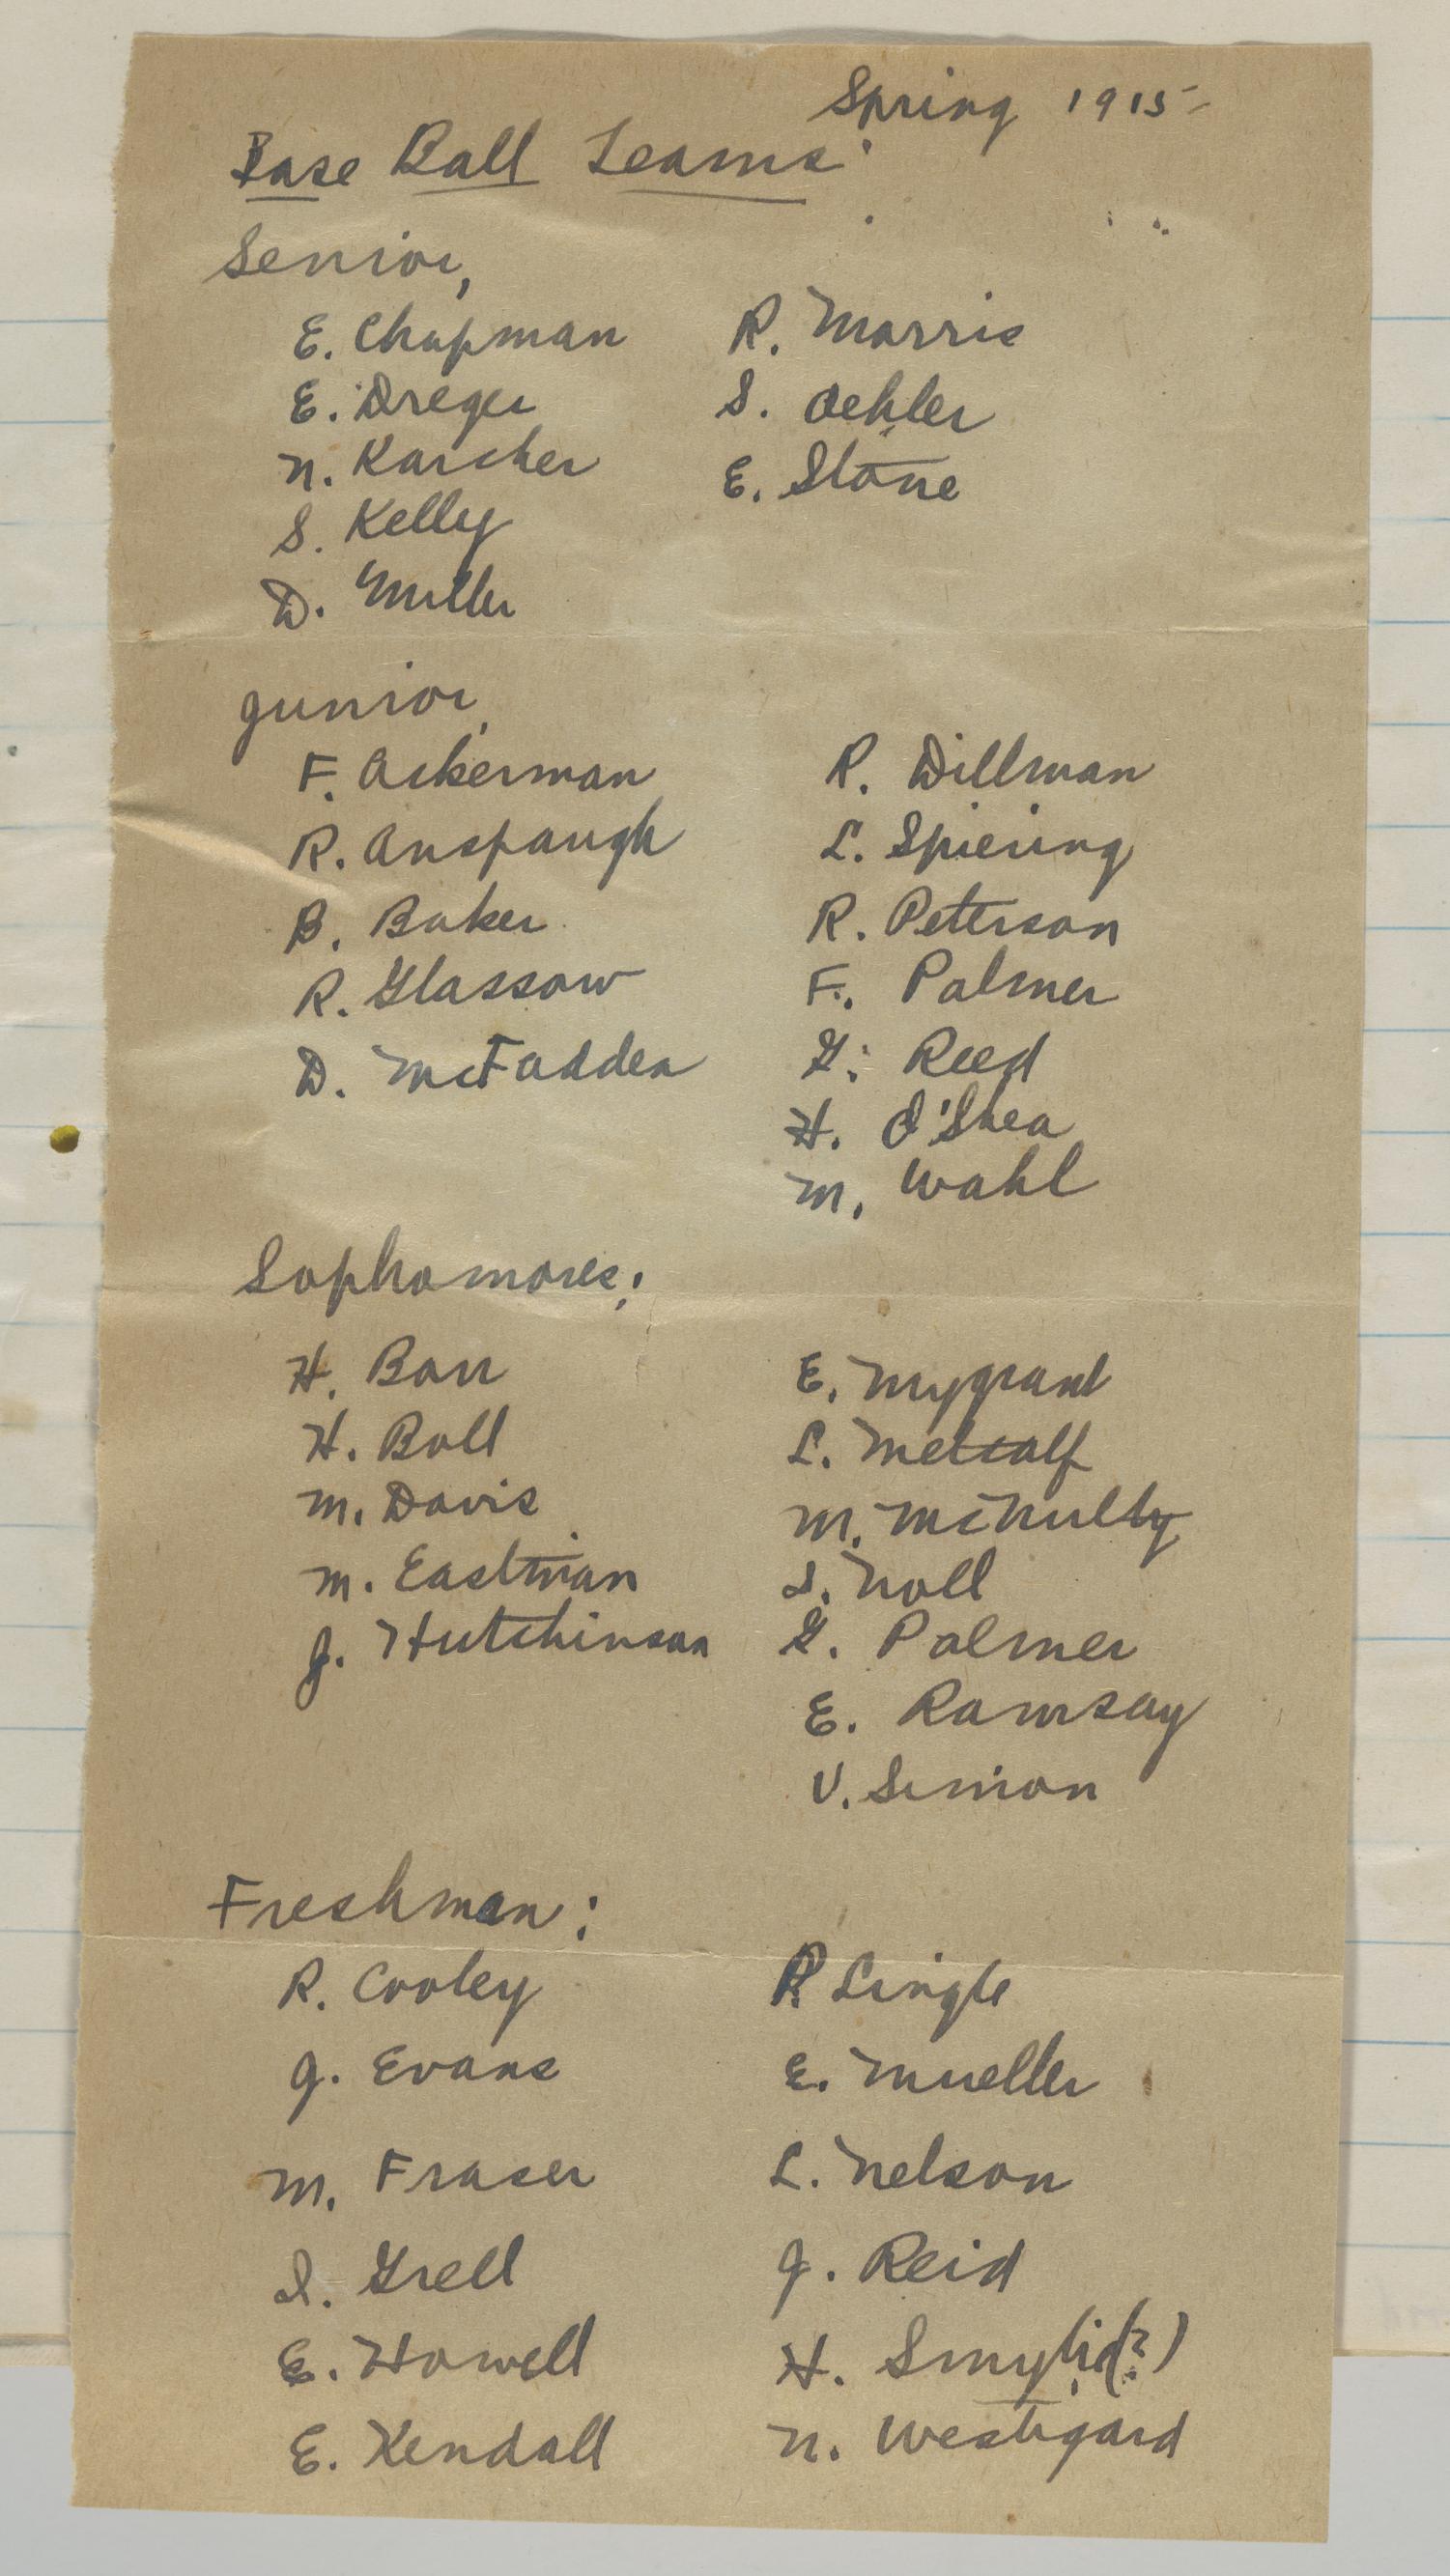 Spring 1915
Base Ball Teams
Senior,
E. Chapman
E. Dreger
N. Karcher
S. Kelly
D. Miller
R. Morris
S. Oehler
E. Stone
Junior,
F. Ackerman
R. Anspaugh
B. Baker
R. Glassow
D. McFadden
R. Dillman
L. Spiering
R. Peterson
F. Palmer
G. Reed
H. O'Shea
M. Wahl
Sophomores;
H. Barr
H. Boll
M. Davis
M. Eastman
J. Hutchinson
E. Mygrant
L. Metcalf
M. McNulty
I. Noll
G. Palmer
E. Ramsay
V. Simon
Freshman:
R. Cooley
J. Evans
M. Fraser
I. Grell
E. Howell
E. Kendall
R. Lingle
E. Mueller
L. Nelson
J. Reid
H. Smylid(?)
N. Westgard